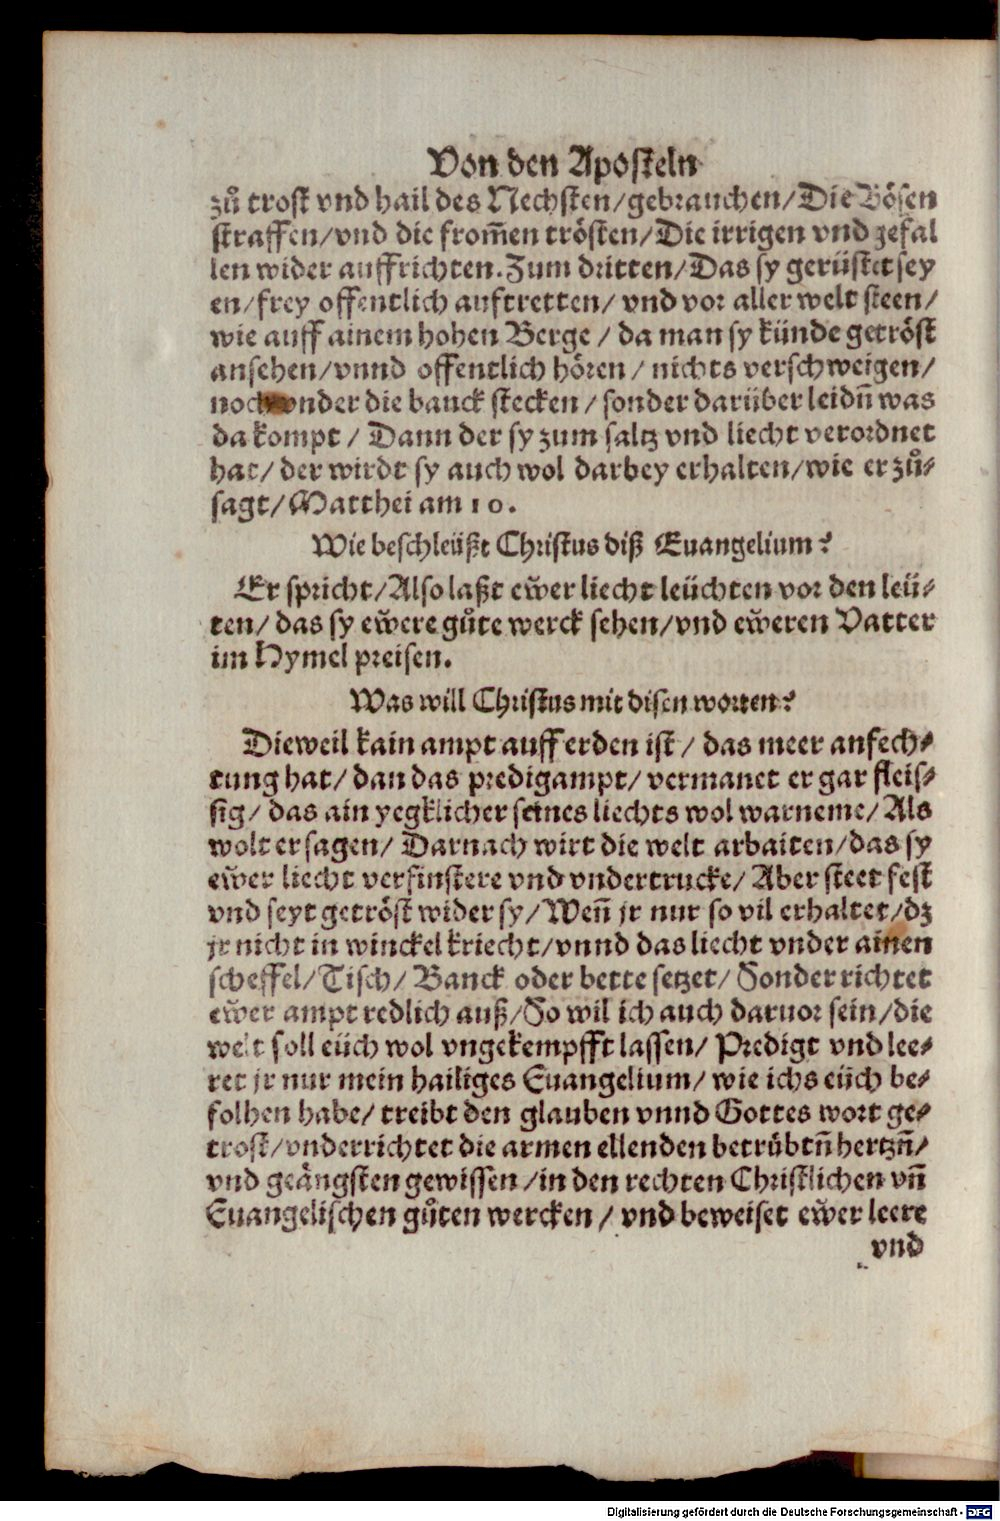 Von den Aposteln
zů trost vnd hail des Nechsten/gebrauchen/Die Bösen
straffen/vnd die from̃en trösten/Die irrigen vnd gefal
len wider auffrichten. Zum dritten/Das sy gerüstet sey
en/frey offentlich auftretten/ vnd vor aller welt steen/
wie auff ainem hohen Berge / da man sy künde getröst
ansehen/vnnd offentlich hören / nichts verschweigen/
noch vnder die banck stecken / sonder darüber leidñ was
da kompt / Dann der sy zum saltz vnd liecht verordnet
hat/ der wirdt sy auch wol darbey erhalten/wie er zů-
sagt/Matthei am 10.
Wie beschleüßt Christus diß Euangelium?
Er spricht/Also laßt ew̆er liecht leüchten vor den leü-
ten/ das sy ew̆ere gůte werck sehen/vnd ew̆eren Vatter
im Hymel preisen.
Was will Christus mit disen worten?
Dieweil kain ampt auff erden ist / das meer anfech-
tung hat/ dan das predigampt/ vermanet er gar fleis-
sig/ das ain yegklicher seines liechts wol warneme/ Als
wolt er sagen/ Darnach wirt die welt arbaiten/das sy
ew̆er liecht verfinstere vnd vndertrucke/ Aber steet fest
vnd seyt getröst wider sy/ Weñ jr nur so vil erhaltet/dz
jr nicht in winckel kriecht/vnnd das liecht vnder ainen
scheffel/Tisch/ Banck oder bette setzet/ Sonder richtet
ew̆er ampt redlich auß/So wil ich auch daruor sein/die
welt soll eüch wol vngekempfft lassen/ Predigt vnd lee-
ret jr nur mein hailiges Euangelium/ wie ichs eüch be-
folhen habe/ treibt den glauben vnnd Gottes wort ge-
trost/vnderrichtet die armen ellenden betrübtñ hertzñ/
vnd geängsten gewissen /in den rechten Christlichen vñ
Euangelischen gůten wercken / vnd beweiset ew̆er leere
vnd
Digitalisierung gefördert durch die Deutsche Forschungsgemeinschaft - DFG